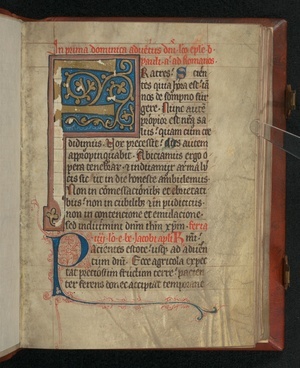 In prima dominica adventus dni. lco eple b
pauli. a. ad Romanos.
Fratres. Scien
tes quia hora est iā
nos de sompno sur
gere. Nunc autem
propior est nrā sa
lus. quam cum cre
didimus. Nox precessit. dies autem
appropinquabit. Abiciamus ergo o
pera tenebrar. & induamur arma lu
cis sic ut in die honeste ambulemus.
Non in comessacionib; & ebrietati
bus. non in cubilib; & in pudiciciis.
non in contencione et emulacione.
sed induimini dnm ihm xpm. feria
iiij. lc. e. be. Jacobi apli. Rmi.
Pacientes estote. usq; ad aduen
tum dni. Ecce agricola expec
tat preciosum fructum terre. pacien
ter ferens donec accipiat temporane